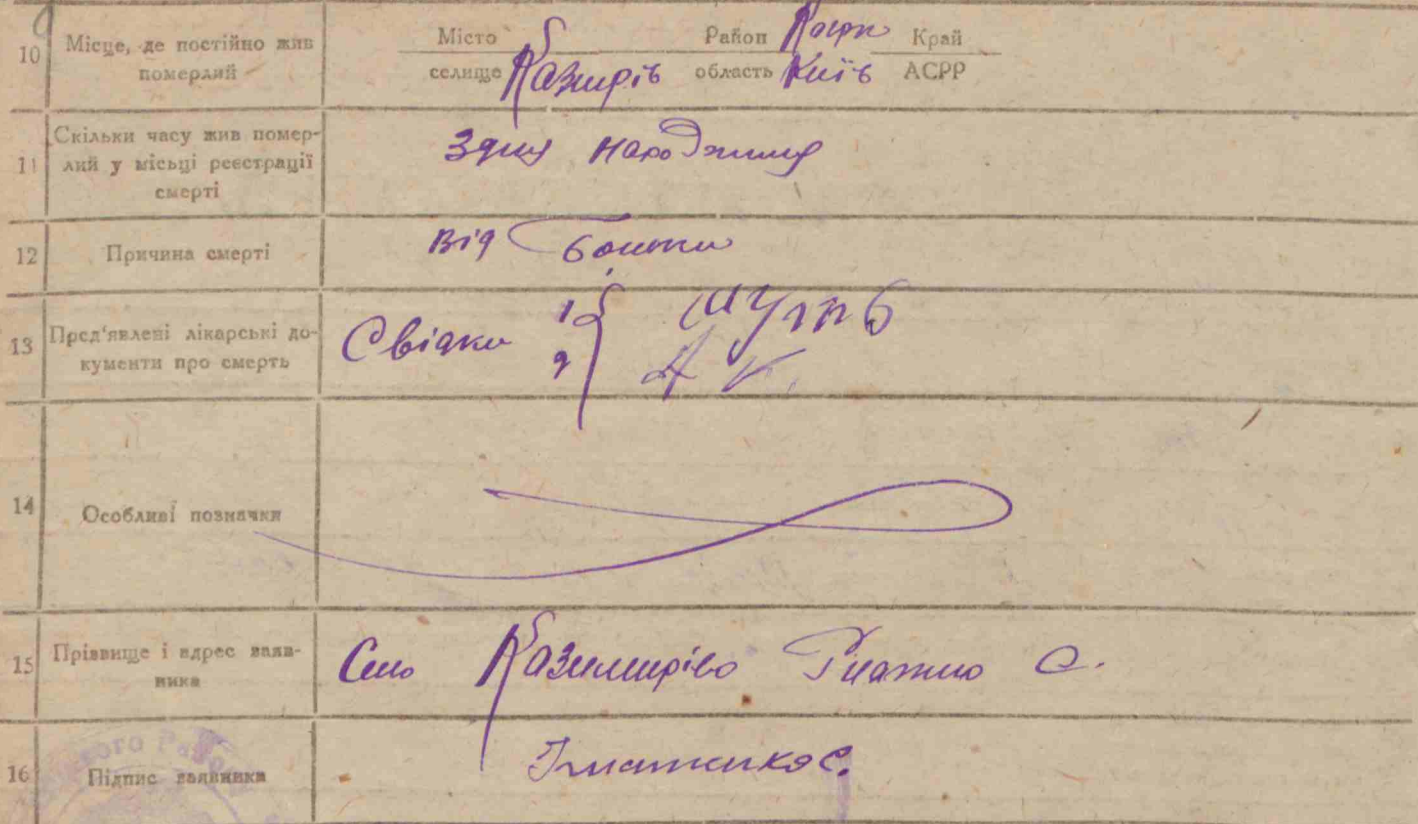 10 Місце, де постійно жив Місто Район Край
померлий селище Казмирів область Київ АСРР
11 Скільки часу жив помер-
лий у місьці реєстрації
смерті
з дня народження
12 Причина смерті Від
13 Пред'явлені лікарські до-
кументи про смерть
Свідки 1
2
14 Особливі позначки
15 Прізвище і адрес заяв-
ника
Село Казимиріво С.
16 Підпис заявника